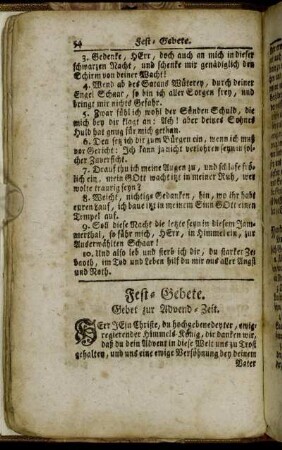 54 Fest-Gebete.
3. Gedenke, HErr, doch auch an mich in dieser
schwarzen Nacht, und schenke mir genädiglich den
Schirm von deiner Wacht!
4. Wend ab des Satans Wüterey, durch deiner
Engel Schaar, so bin ich aller Sorgen frey, und
bringt mir nichts Gefahr.
5. Zwar fühl ich wohl der Sünden Schuld, die
mich bey dir klagt an: Ach! aber deines Sohnes
Huld hat gnug für mich gethan.
6. Den setz ich dir zum Bürgen ein, wenn ich muß
vor Gericht: Ich kan ja nicht verlohren seyn in sol-
cher Zuversicht.
7. Drauf thu ich meine Augen zu, und schlafe frö-
lich ein, mein GOtt wacht itzt in meiner Ruh, wer
wolte traurig seyn?
8. Weicht, nichtige Gedanken, hin, wo ihr habt
euren Lauf, ich baue itzt in meinem Sinn GOtt einen
Tempel auf.
9. Soll diese Nacht die letzte seyn in diesem Jam-
merthal, so führ mich, HErr, in Himmel ein, zur
Auserwählten Schaar!
10. Und also leb und sterb ich dir, du starker Ze-
baoth, im Tod und Leben hilf du mir aus aller Angst
und Noth.
Fest-Gebete.
Gebet zur Advend-Zeit.
HErr JEsu Christe, du hochgebenedeyter, ewig-
regierender Himmels-König, dir danken wir,
daß du dein Advent in diese Welt uns zu Trost
gehalten, und uns eine ewige Versöhnung bey deinem
Vater